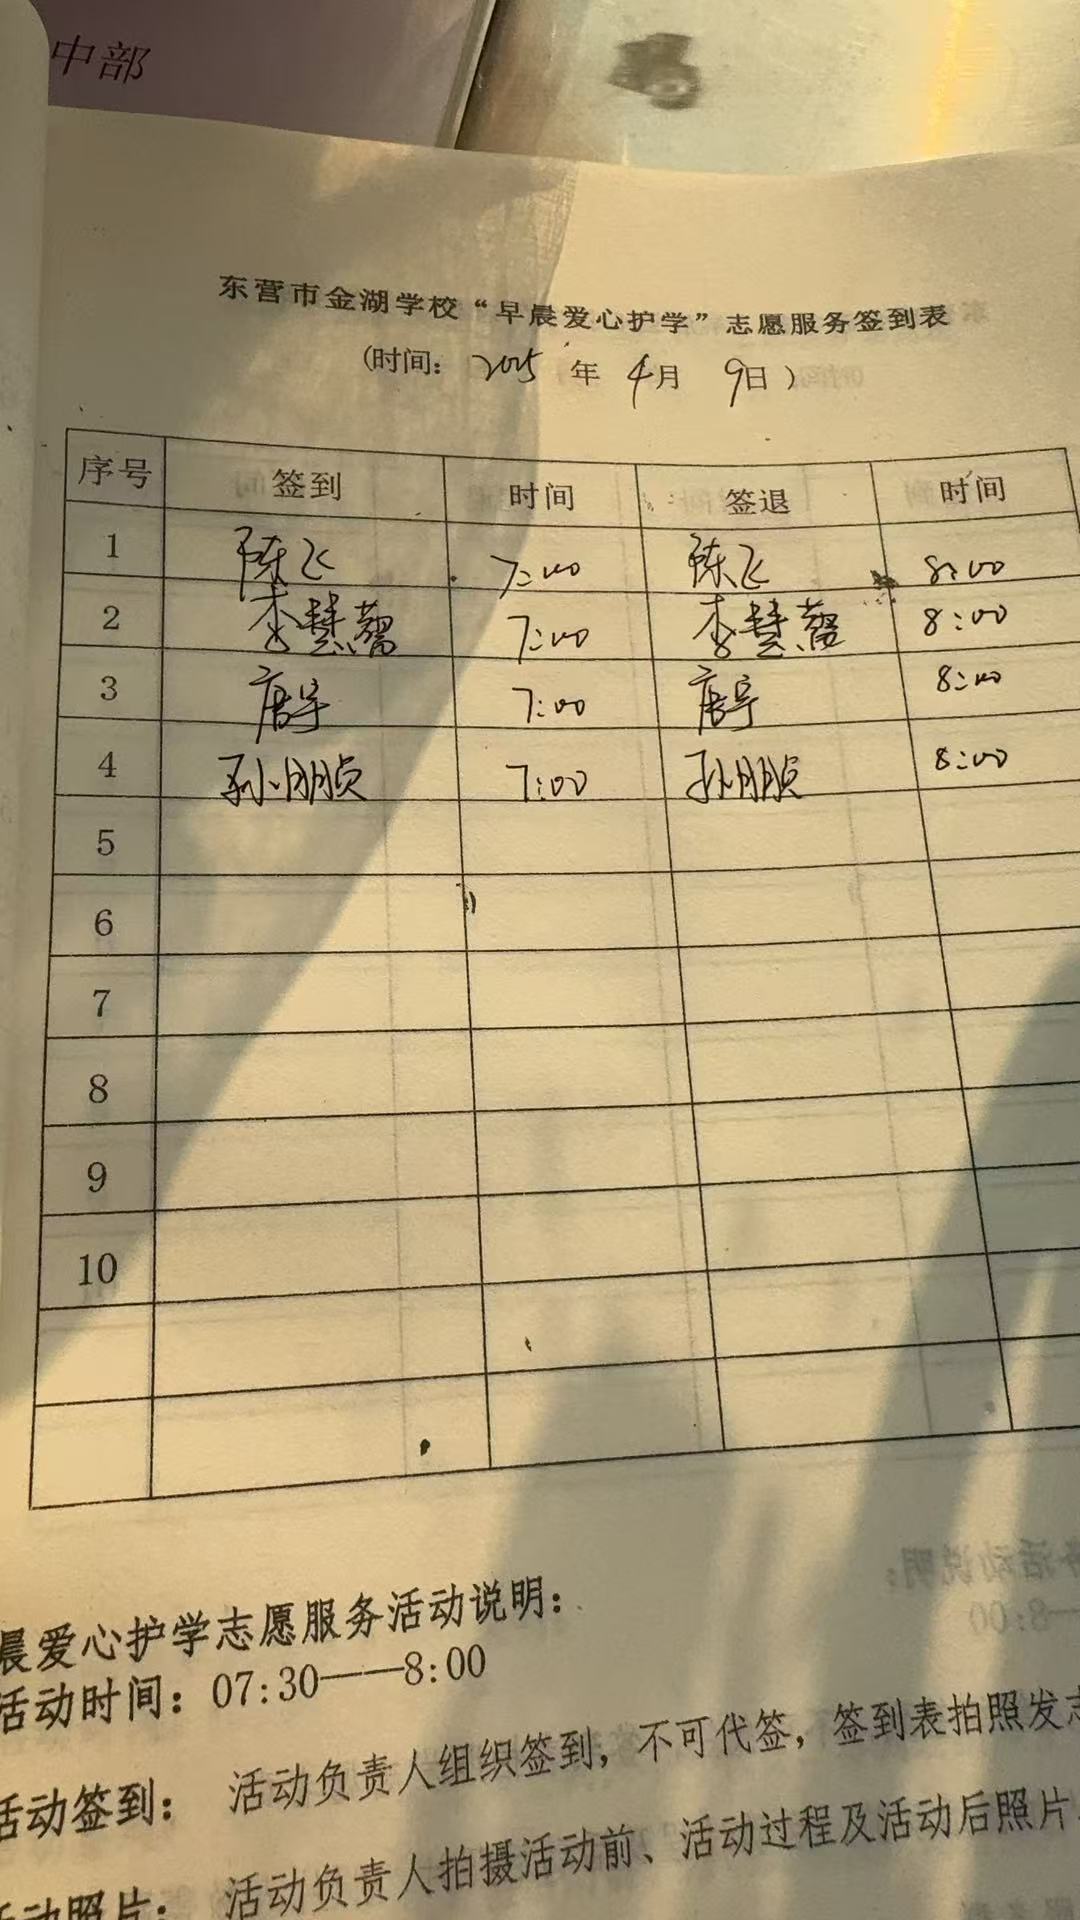 中部
东营市金湖学校“早晨爱心护学”志愿服务签到表
(时间: 2025 年 4月 9日)
序号 签到 时间 签退 时间
1 陈飞 7:00 陈飞 8:00
2 李慧馨 7:00 李慧馨 8:00
3 唐宇 7:00 唐宇 8:00
4 孙朋贞 7:00 孙朋贞 8:00
5
6
7
8
9
10
晨爱心护学志愿服务活动说明:
活动时间: 07:30——8:00
活动签到: 活动负责人组织签到, 不可代签, 签到表拍照发志
活动照片: 活动负责人拍摄活动前、活动过程及活动后照片